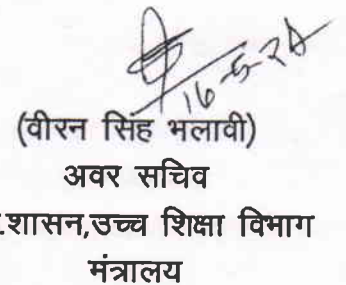 16-5-24
(वीरन सिंह भलावी)
अवर सचिव
.शासन,उच्च शिक्षा विभाग
मंत्रालय